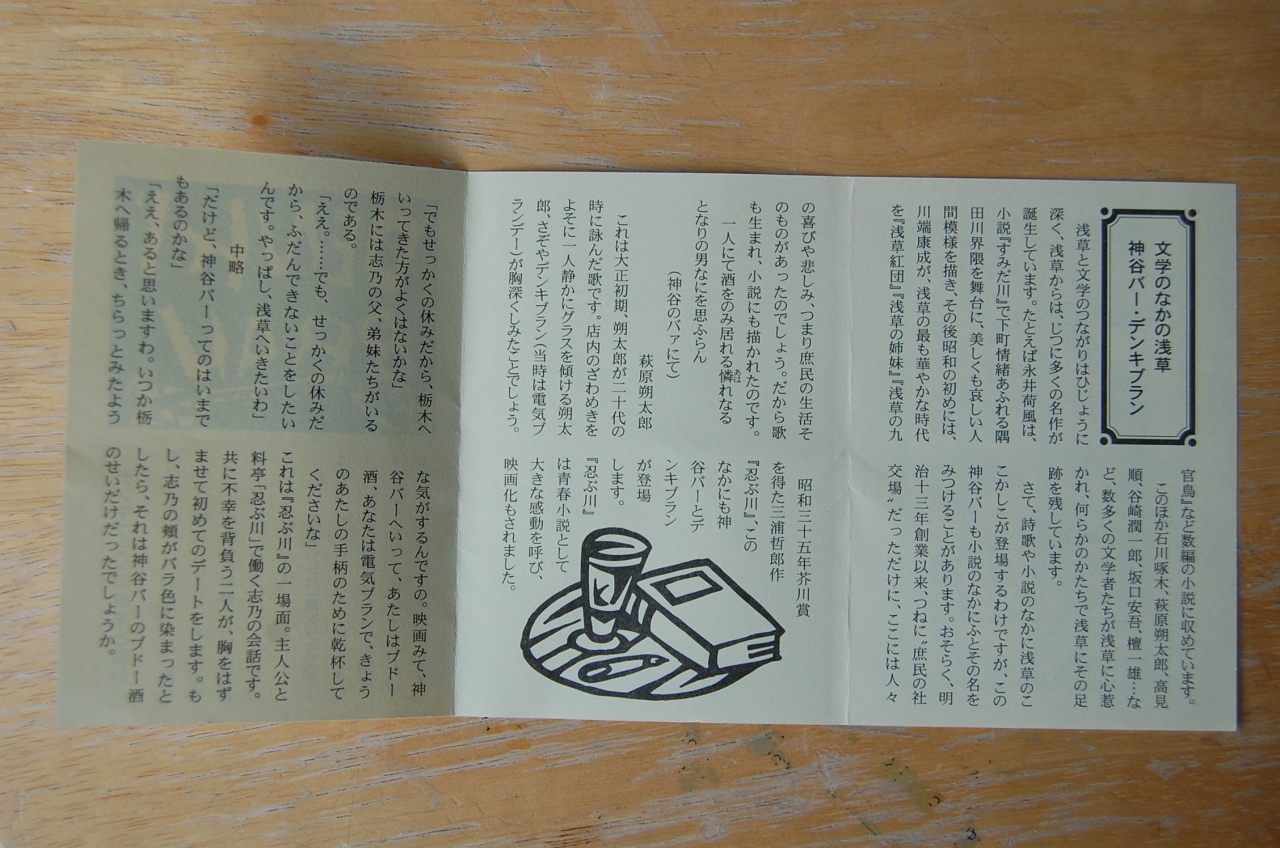 文学のなかの浅草
神谷バー・デンキブラン
浅草と文学のつながりはひじょうに
深く、浅草からは、じつに多くの名作が
誕生しています。たとえば永井荷風は、
小説『すみだ川』で下町情緒あふれる隅
田川界隈を舞台に、美しくも哀しい人
間模様を描き、その後昭和の初めには、
川端康成が、浅草の最も華やかな時代
を『浅草紅団』『浅草の姉妹』『浅草の九
官鳥』など数編の小説に収めています。
このほか石川啄木、萩原朔太郎、高見
順、谷崎潤一郎、坂口安吾、檀一雄…な
ど、数多くの文学者たちが浅草に心惹
かれ、何らかのかたちで浅草にその足
跡を残しています。
さて、詩歌や小説のなかに浅草のこ
こかしこが登場するわけですが、この
神谷バーも小説のなかにふとその名を
みつけることがあります。おそらく、明
治十三年創業以来、つねに〝庶民の社
交場〟だっただけに、ここには人々
の喜びや悲しみ、つまり庶民の生活そ
のものがあったのでしょう。だから歌
も生まれ、小説にも描かれたのです。
一人にて酒をのみ居れる憐れなる
あは
となりの男なにを思ふらん
(神谷のバァにて)
萩原朔太郎
これは大正初期、朔太郎が二十代の
時に詠んだ歌です。店内のざわめきを
よそに一人静かにグラスを傾ける朔太
郎、さぞやデンキブラン(当時は電気ブ
ランデー)が胸深くしみたことでしょう。
昭和三十五年芥川賞
を得た三浦哲郎作
『忍ぶ川』、この
なかにも神
谷バーとデ
ンキブラン
が登場
します。
『忍ぶ川』
は青春小説として
大きな感動を呼び、
映画化もされました。
「でもせっかくの休みだから、栃木へ
いってきた方がよくはないかな」
栃木には志乃の父、弟妹たちがいる
のである。
「ええ。……でも、せっかくの休みだ
から、ふだんできないことをしたい
んです。やっぱし、浅草へいきたいわ」
中略
「だけど、神谷バーってのはいまで
もあるのかな」
「ええ、あると思いますわ。いつか栃
木へ帰るとき、ちらっとみたよう
な気がするんですの。映画みて、神
谷バーへいって、あたしはブドー
酒、あなたは電気ブランで、きょう
のあたしの手柄のために乾杯して
くださいな」
これは『忍ぶ川』の一場面。主人公と
料亭「忍ぶ川」で働く志乃の会話です。
共に不幸を背負う二人が、胸をはず
ませて初めてのデートをします。も
し、志乃の頬がバラ色に染まったと
したら、それは神谷バーのブドー酒
のせいだけだったでしょうか。